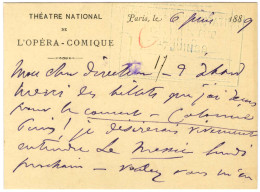 THÉATRE NATIONAL
DE
L'OPÉRA-COMIQUE
Paris, le 6 juin 1889
Mon cher directeur
merci des billets que j'ai
pour le concert - Colonne
je désirerais vivement
entendre Le lundi
prochain - voulez vous m'en